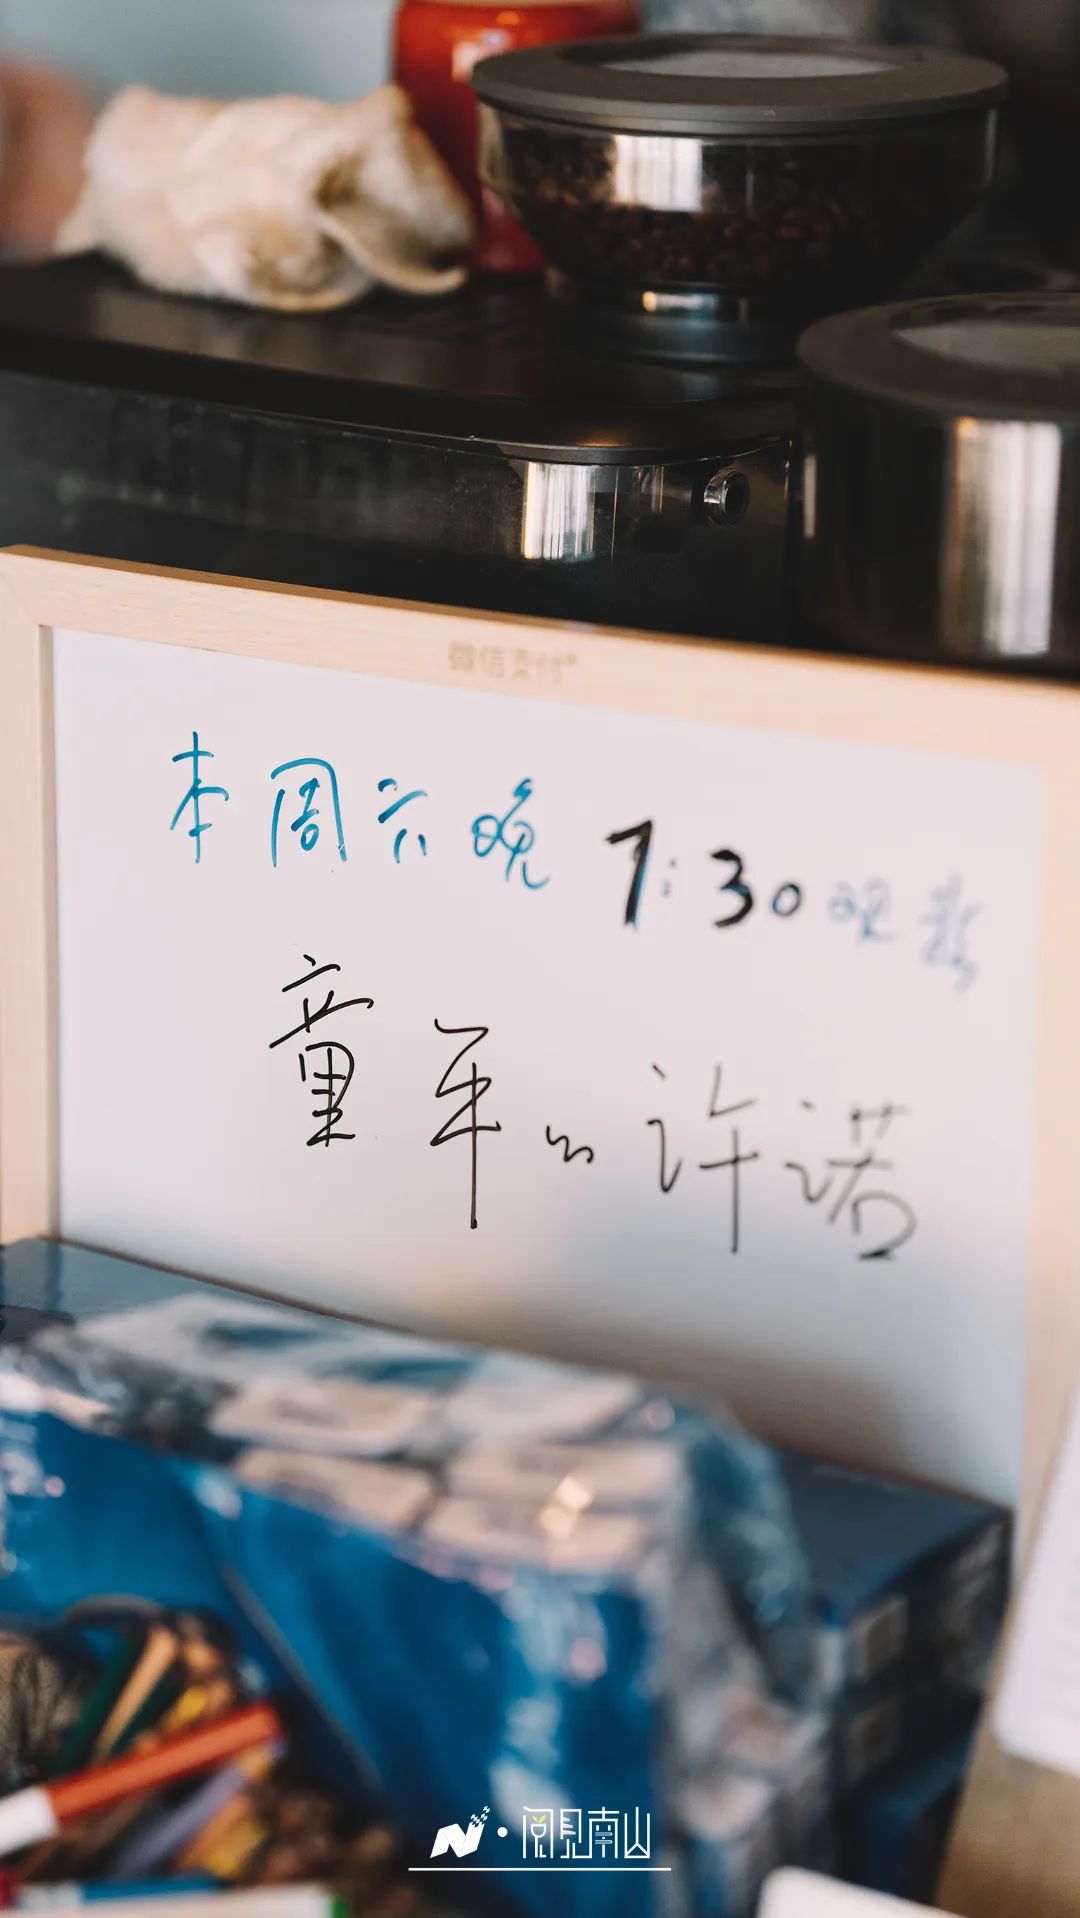 微信支付
本周六晚 7:30观影
童年的许诺
N·阅见南山